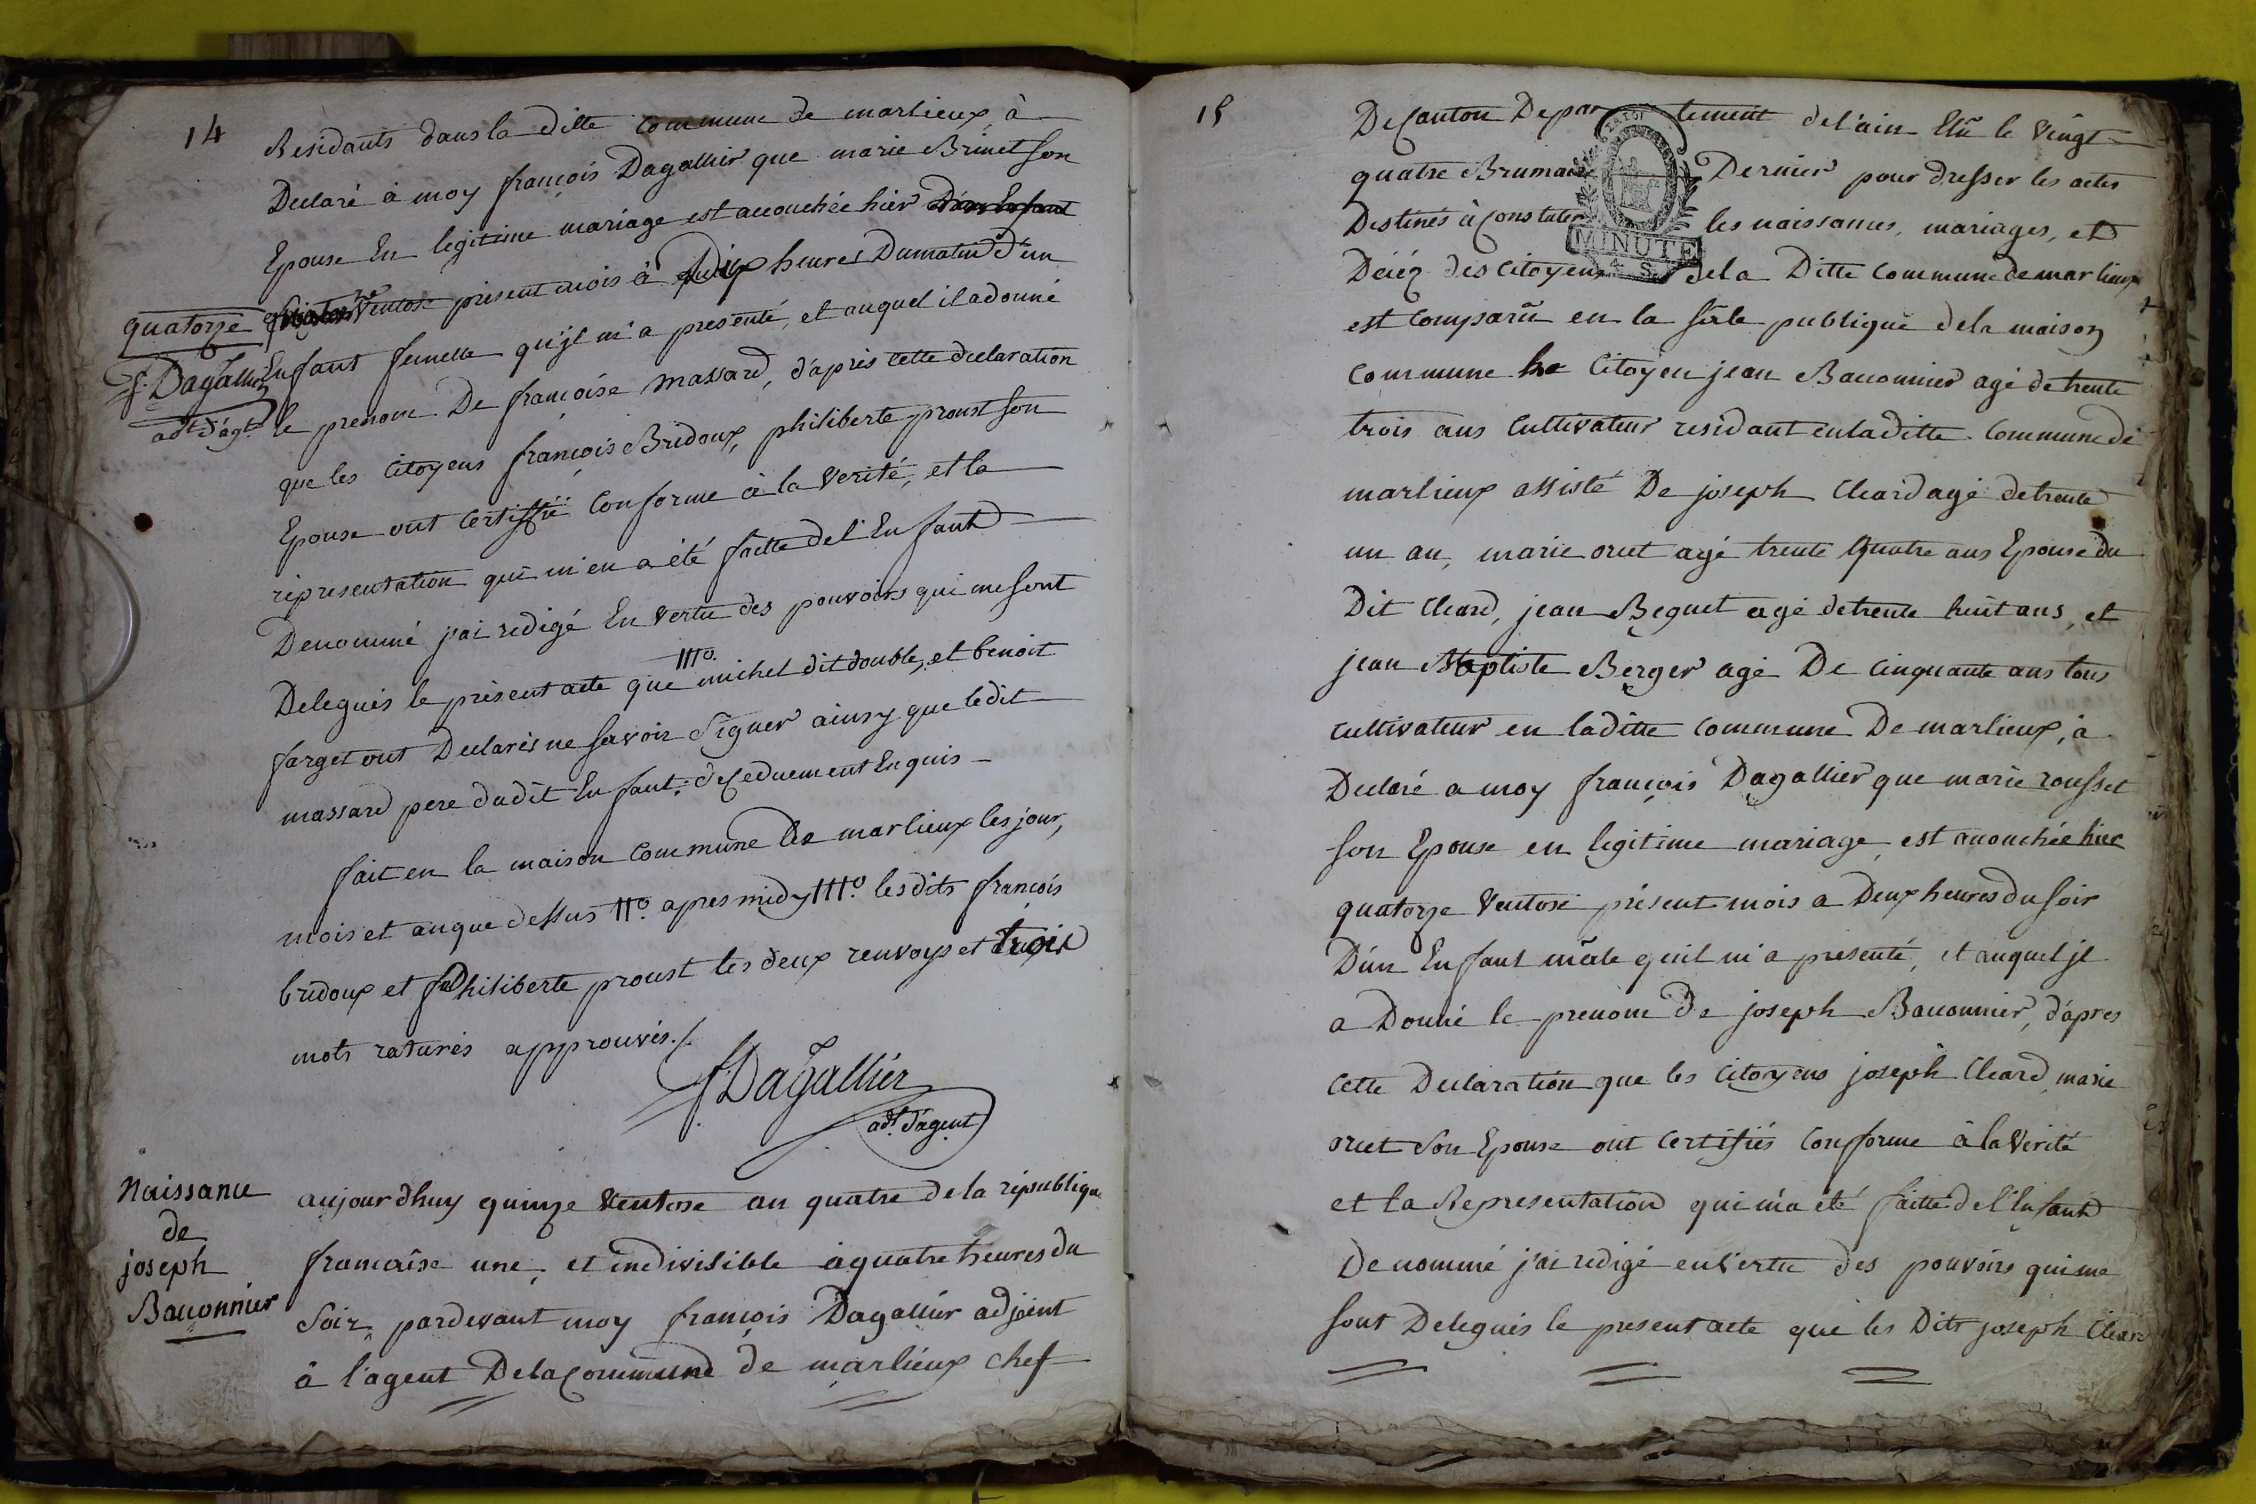 14
Residants dans la ditte commune de marlieux à
Declaré à moy françois Dagallier que marie Brunet son
Epouse En legitime mariage est accouchée hier D'un Enfant
quatorze Ventose présent mois à dix heures Dumatin d'un
quatorze
f. Dagallier
adt d'agt
Enfant femelle qu'jl m'a presenté, et auquel il a donné
le prenom De françoise massard, d'après cette declaration
que les Citoyens françois Bridoux, philiberte proust son
Epouse ont certiffié conforme à la verité, et la
répresentation qui m'en a été faitte de l'Enfant
Denommé j'ai redigé En vertu des pouvoirs qui me sont
Delegués le présent acte que IIIo. michel dit double, et benoit
farget ont Declarés ne savoir signer ainsy que ledit
massard pere dudit Enfant, de ce duement Enquis
fait en la maison commune de marlieux les jour,
mois et an que dessus IIo. apres midy IIIo. les dits françois
bridoux et philiberte proust les deux renvoys et trois
mots raturés approuvés./.
f. Dagallier
adt. d'agent
Naissance
de
joseph
Bauonnier
aujourdhuy quinze Ventose an quatre de la république
francaise une, et indivisible à quatre heures du
Soir, pardevant moy françois Dagallier adjoint
à l'agent De la Commune de marlieux chef
15
De Canton Departement de l'ain Elû le vingt
quatre Brumaire Dernier pour dresser les actes
Destinés à constater les naissances, mariages, et
Décéz des citoyens de la Ditte commune de marlieux
MINUTE
4 S.
est comparû en la salle publique de la maison
commune le Citoyen jean Bauonnier agé de trente
trois ans Cultivateur residant en la ditte Commune de
marlieux assisté De joseph Cleard agé de trente
un an, marie oret agé trente quatre ans Epouse du
Dit Cleard, jean Beguet agé de trente huit ans, et
jean Baptiste Berger agé De cinquante ans tous
cultivateur en laditte commune De marlieux, à
Declaré a moy françois Dagallier que marie rousset
son Epouse en legitime mariage, est accouchée hier
quatorze Ventose présent mois a Deux heures du soir
D'un Enfant mâle qu'il m'a presenté, et auquel jl
a Donné le prenom De joseph Bauonnier, d'apres
cette Declaration que les citoyens joseph Cleard, marie
oret Son Epouse ont certifiés conforme à la Verité
et la Representation qui m'a été faitte de l'Enfant
Denommé j'ai redigé en vertu des pouvoirs qui me
sont Delegués le present acte que les Dits joseph Cleard